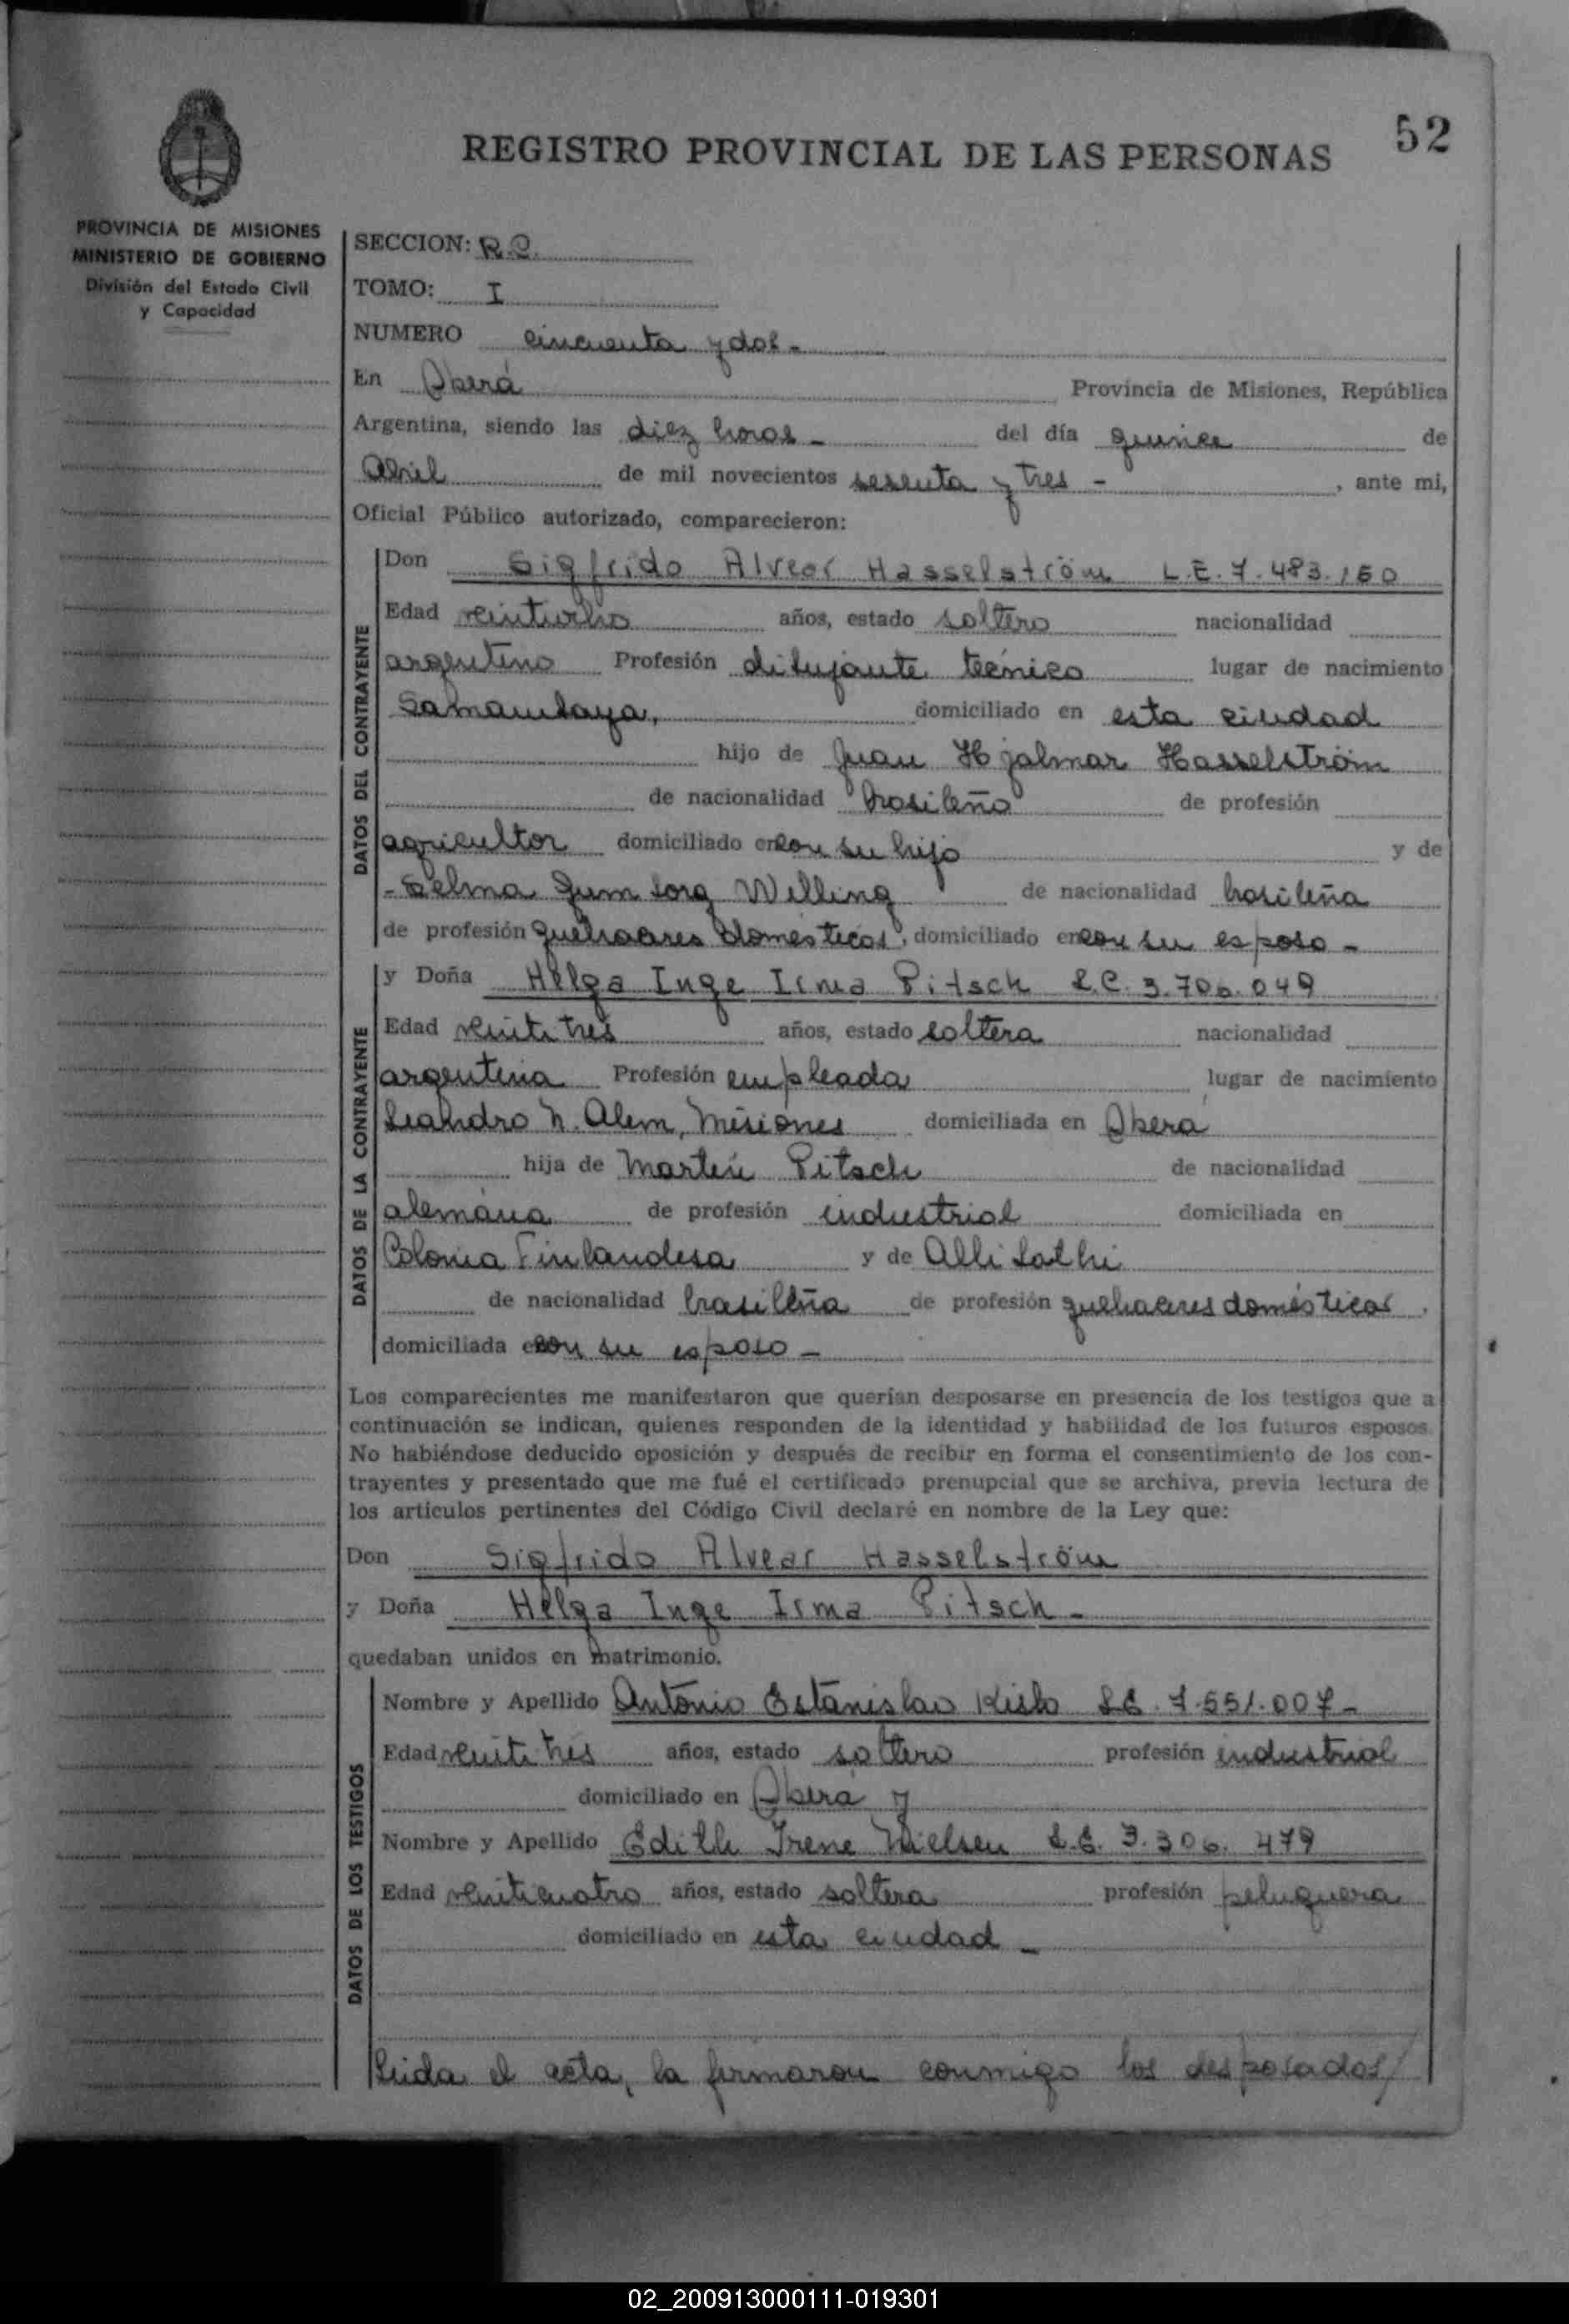 52
REGISTRO PROVINCIAL DE LAS PERSONAS
PROVINCIA DE MISIONES
MINISTERIO DE GOBIERNO
División del Estado Civil
y Capacidad
SECCION: R.C.
TOMO: I
NUMERO cincuenta y dos -
En Oberá Provincia de Misiones, República
Argentina, siendo las diez horas - del día quince de
Abril de mil novecientos sesenta y tres - , ante mi,
Oficial Público autorizado, comparecieron:
DATOS DEL CONTRAYENTE
Don Sigfrido Alvear Hasselström L.E. 7.483.160
Edad veintiocho años, estado soltero nacionalidad
argentino Profesión dibujante técnico lugar de nacimiento
Samambaya, domiciliado en esta ciudad
hijo de Juan Hjalmar Hasselström
de nacionalidad brasileño de profesión
agricultor domiciliado en con su hijo y de
- Selma Willing de nacionalidad brasileña
de profesión quehaceres domésticos, domiciliado en con su esposo -
DATOS DE LA CONTRAYENTE
y Doña Helga Inge Irma Pitsch L.C. 3.706.049
Edad veintitrés años, estado soltera nacionalidad
argentina Profesión empleada lugar de nacimiento
Leandro N. Alem, Misiones domiciliada en Oberá
hija de Martín Pitsch de nacionalidad
alemana de profesión industrial domiciliada en
Colonia Finlandesa y de Alli Lathi
de nacionalidad brasileña de profesión quehaceres domésticos,
domiciliada en con su esposo -
Los comparecientes me manifestaron que querían desposarse en presencia de los testigos que a
continuación se indican, quienes responden de la identidad y habilidad de los futuros esposos.
No habiéndose deducido oposición y después de recibir en forma el consentimiento de los con-
trayentes y presentado que me fué el certificado prenupcial que se archiva, previa lectura de
los artículos pertinentes del Código Civil declaré en nombre de la Ley que:
Don Sigfrido Alvear Hasselström
y Doña Helga Inge Irma Pitsch -
quedaban unidos en matrimonio.
DATOS DE LOS TESTIGOS
Nombre y Apellido Antonio Estanislao L.E. 7.551.007 -
Edad veintitrés años, estado soltero profesión industrial
domiciliado en Oberá y
Nombre y Apellido Edith Irene Nielsen L.C. 3.306.479
Edad veinticuatro años, estado soltera profesión peluquera
domiciliado en esta ciudad -
Leida el acta, la firmaron conmigo los desposados/
02_200913000111-019301